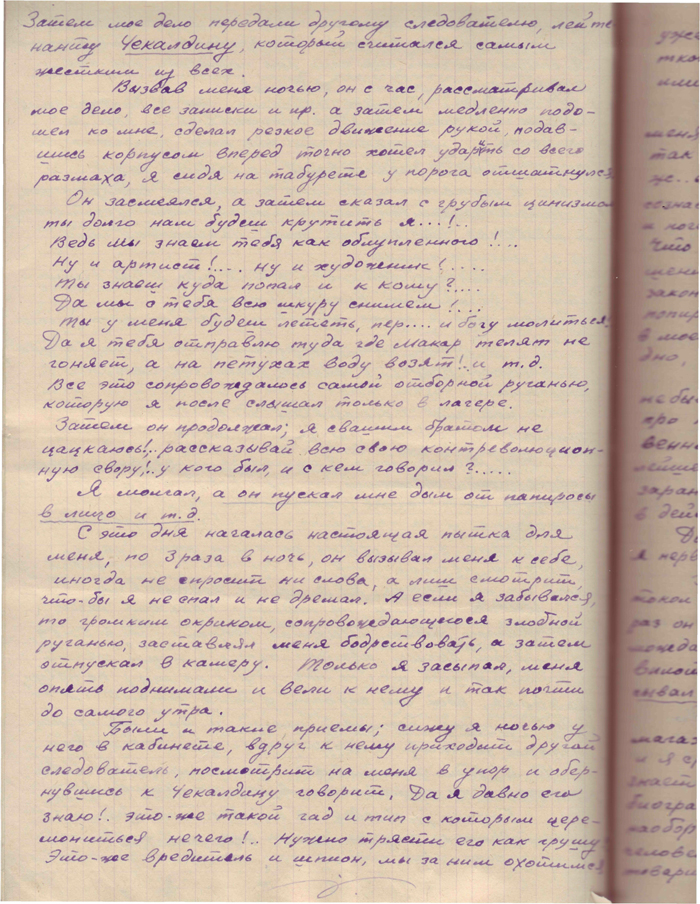 Затем мое дело передали другому следователю, лейте
нанту Чекалдину, который считался самым
жестким из всех.
Вызвав меня ночью, он с час, рассматривал
мое дело, все записки и пр. а затем медленно подо-
шел ко мне, сделал резкое движение рукой, подав-
шись корпусом вперед точно хотел ударить со всего
размаха, я сидя на табурете у порога отшатнулся
Он засмеялся, а затем сказал с грубым цинизмом
ты долго нам будеш крутить я...!..
Ведь мы знаем тебя как облупленного!...
Ну и артист!.... Ну и художник!.....
Ты знаеш куда попал и к кому?....
Да мы с тебя всю шкуру снимем!....
Ты у меня будеш лететь, пер.... и богу молиться,
Да я тебя отправлю туда где Макар телят не
гоняет, а на петухах воду возят!.. и т.д.
Все это сопровождалось самой отборной руганью,
которую я после слышал только в лагере.
Затем он продолжал; я с вашим братом не
цацкаюсь!.. рассказывай всю свою контреволюцион-
ную свору,!.. у кого был, и с кем говорил?.....
Я молчал, а он пускал мне дым от папиросы
в лицо и т.д.
С это дня началась настоящая пытка для
меня, по 3 раза в ночь, он вызывал меня к себе,
иногда не спросит ни слова, а лиш смотрит,
что-бы я не спал и не дремал. А если я забывался,
то громким окриком, сопровождающюся злобной
руганью, заставлял меня бодрствовать, а затем
отпускал в камеру. Только я засыпал, меня
опять поднимали и вели к нему и так почти
до самого утра.
Были и такие приемы; сижу я ночью у
него в кабинете, вдруг к нему приходит другой
следователь, посмотрит на меня в упор и обер-
нувшись к Чекалдину говорит, Да я давно его
знаю!.. это-же такой гад и тип с которым цере-
мониться нечего!.. Нужно трясти его как грушу
Это-же вредитель и шпион, мы за ним охотимся